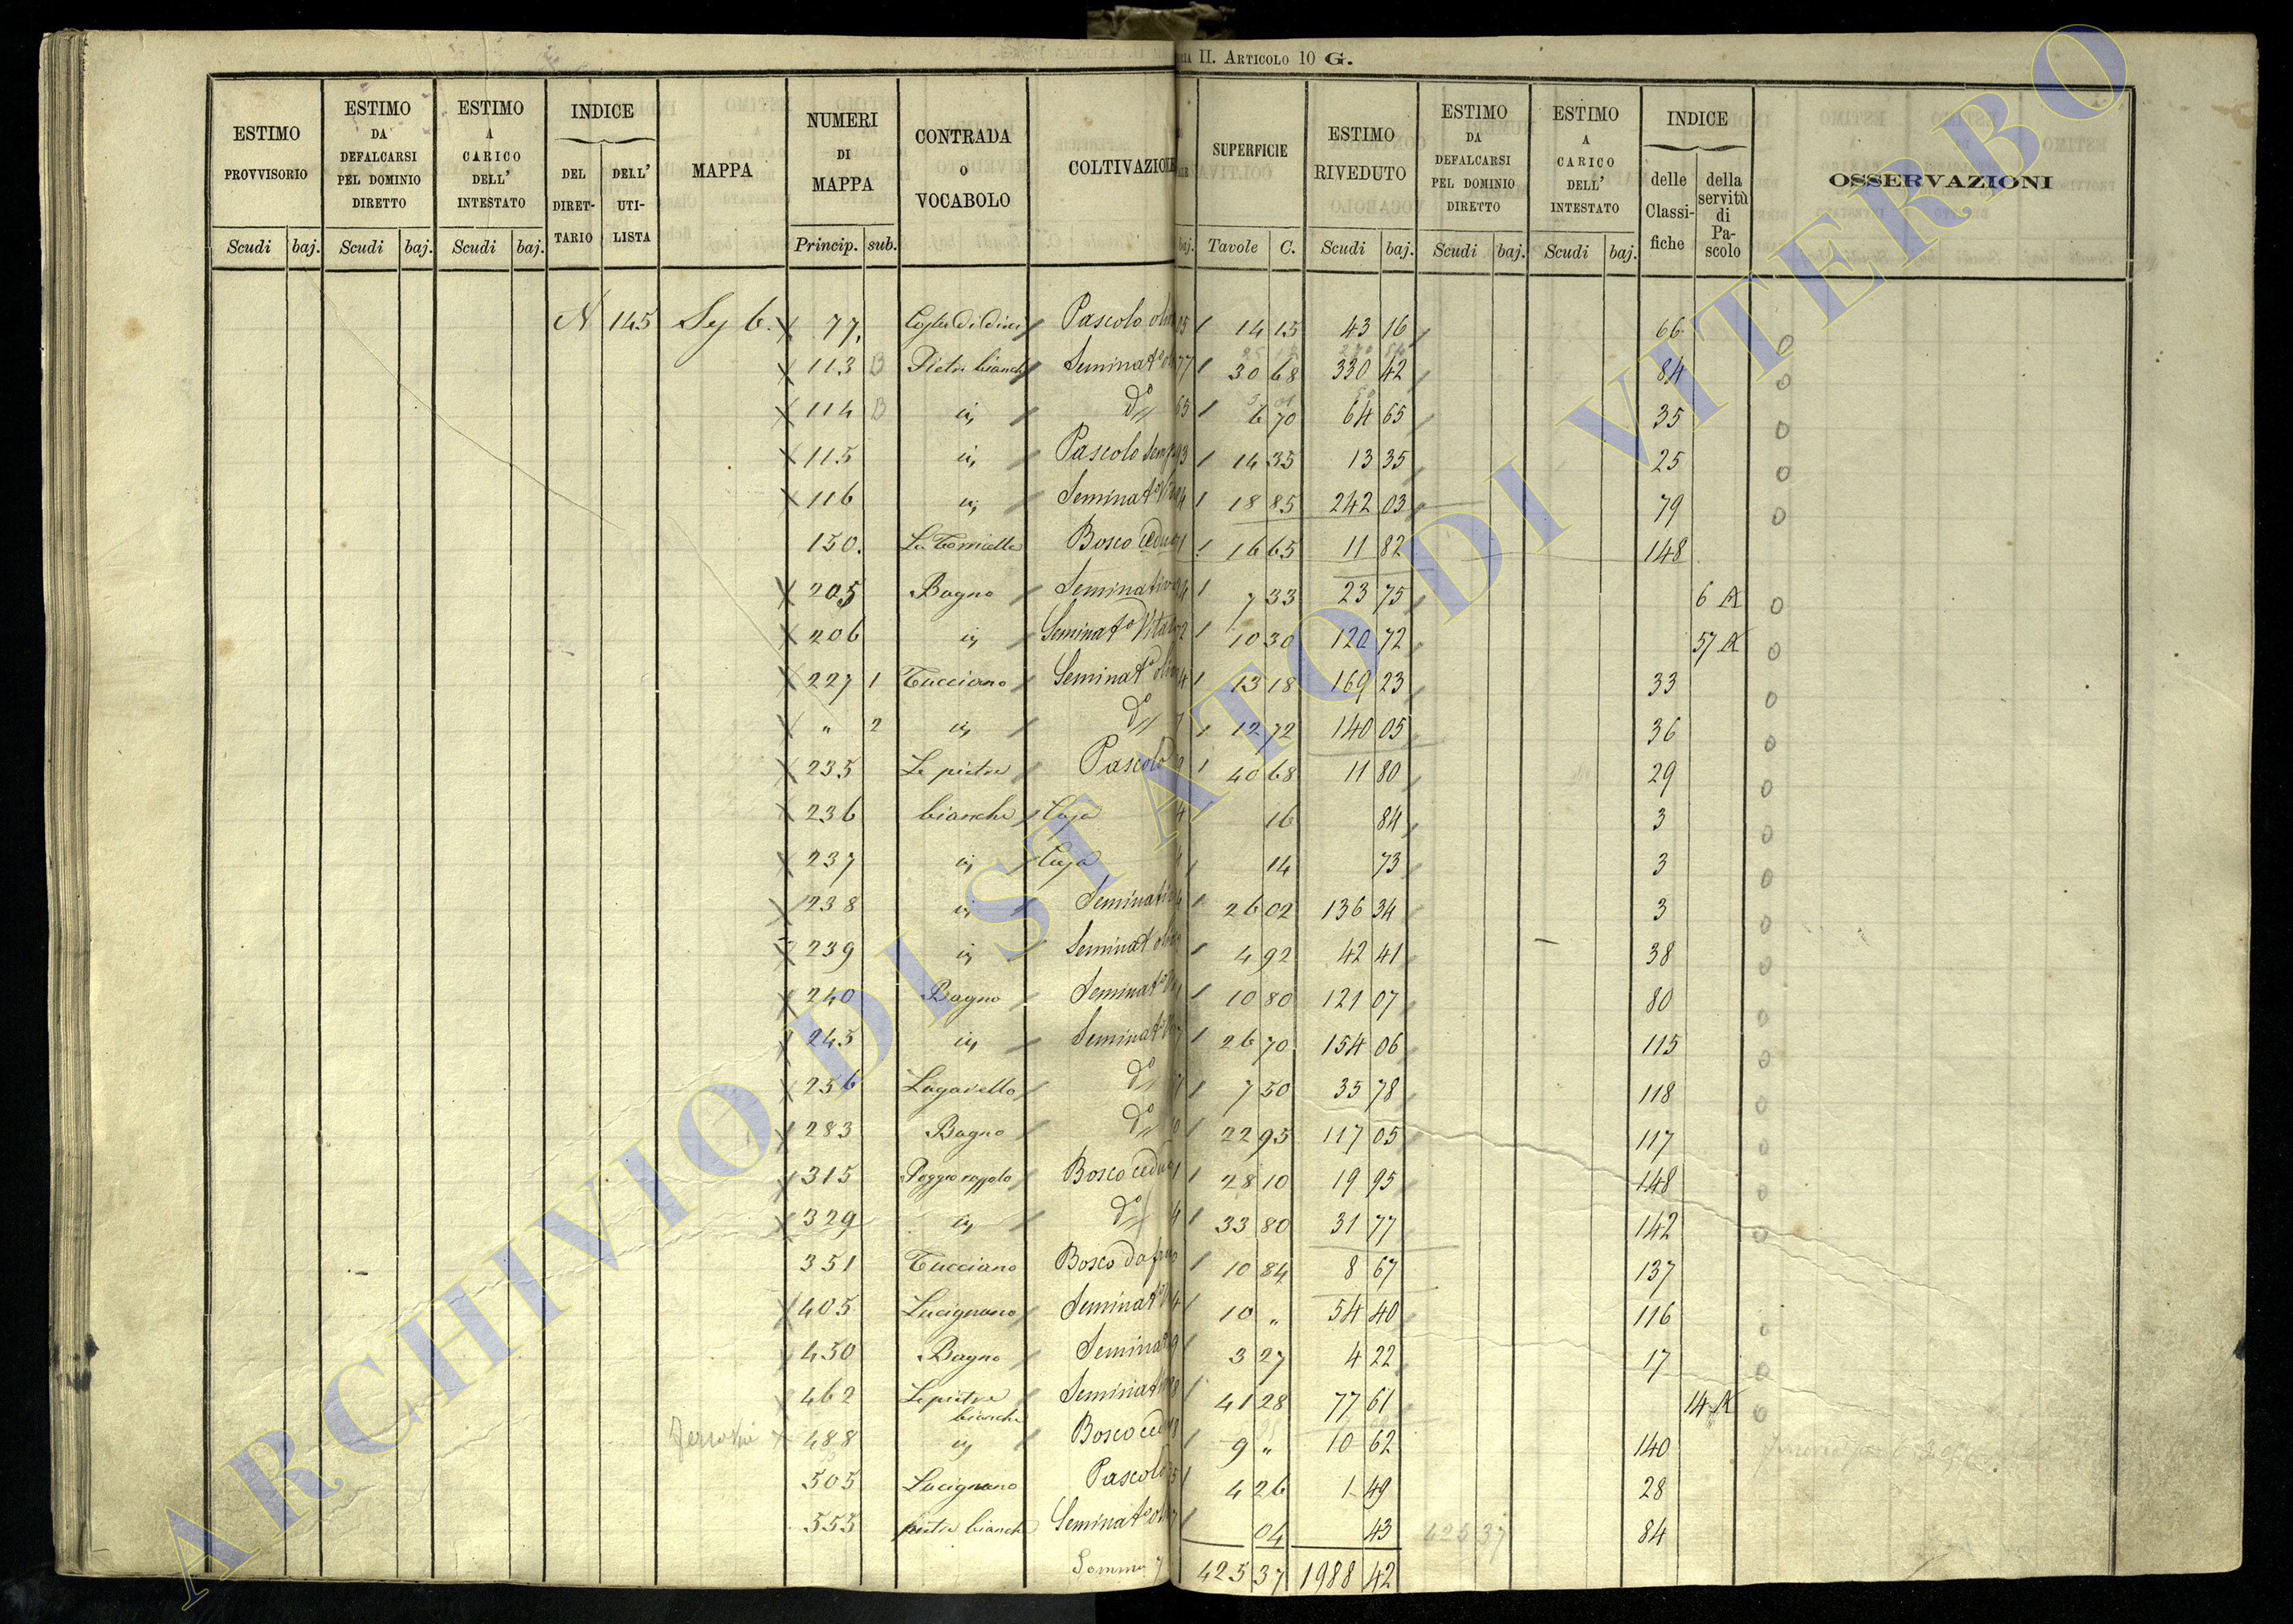 II. ARTICOLO 10 G.
ESTIMO PROVVISORIO
ESTIMO DA DEFALCARSI PEL DOMINIO DIRETTO
ESTIMO A CARICO DELL' INTESTATO
INDICE
DEL DIRET-TARIO
DELL' UTI-LISTA
MAPPA
NUMERI DI MAPPA
CONTRADA o VOCABOLO
COLTIVAZIONE
SUPERFICIE
ESTIMO RIVEDUTO
ESTIMO DA DEFALCARSI PEL DOMINIO DIRETTO
ESTIMO A CARICO DELL' INTESTATO
INDICE
delle Classi-fiche
della servitù di Pa-scolo
OSSERVAZIONI
Scudi baj. Scudi baj. Scudi baj. Princip. sub. baj. Tavole C. Scudi baj. Scudi baj. Scudi baj.
N 145 Sez 6. 77. Pascolo 14 15 43 16 66
113 B Pietre bianche Seminat° 77 30 68 330 42 84
114 B id d° 65 6 70 64 65 35
115 id Pascolo 93 14 35 13 35 25
116 id Seminat° 18 85 242 03 79
150. La Bosco ceduo 16 65 11 82 148
205 Bagno Seminativo 7 33 23 75 6 A
206 id Seminat° Vitato 72 10 30 120 72 57 A
227 1 Tucciano Seminat° 13 18 169 23 33
" 2 id d° 12 72 140 05 36
235 Le pietre Pascolo 40 68 11 80 29
236 bianche Casa 16 84 3
237 id Casa 14 73 3
238 id Seminativo 26 02 136 34 3
239 id Seminat 4 92 42 41 38
240 Bagno Seminat° 10 80 121 07 80
245 id Seminat° 26 70 154 06 115
256 Lagarello d° 7 50 35 78 118
283 Bagno d° 22 95 117 05 117
315 Bosco ceduo 28 10 19 95 148
329 id d° 33 80 31 77 142
351 Tucciano Bosco da 10 84 8 67 137
405 Lucignano Seminat° 10 " 54 40 116
450 Bagno Semina 3 27 4 22 17
462 Le pietre bianche Seminat 41 28 77 61 14 A
488 id Bosco ced 9 " 10 62 140
505 Lucignano Pascolo 4 26 1 49 28
555 pietre bianche Seminat° 04 43 425 37 84
Somma 425 37 1988 42
ARCHIVIO DI STATO DI VITERBO